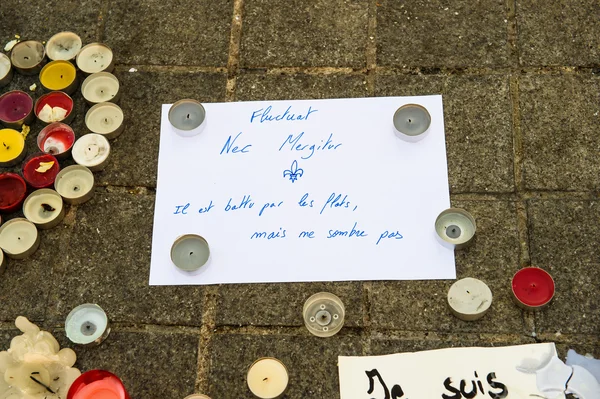 Fluctuat
Nec Mergitur
Il est battu par les flots,
mais ne sombre pas
Je suis